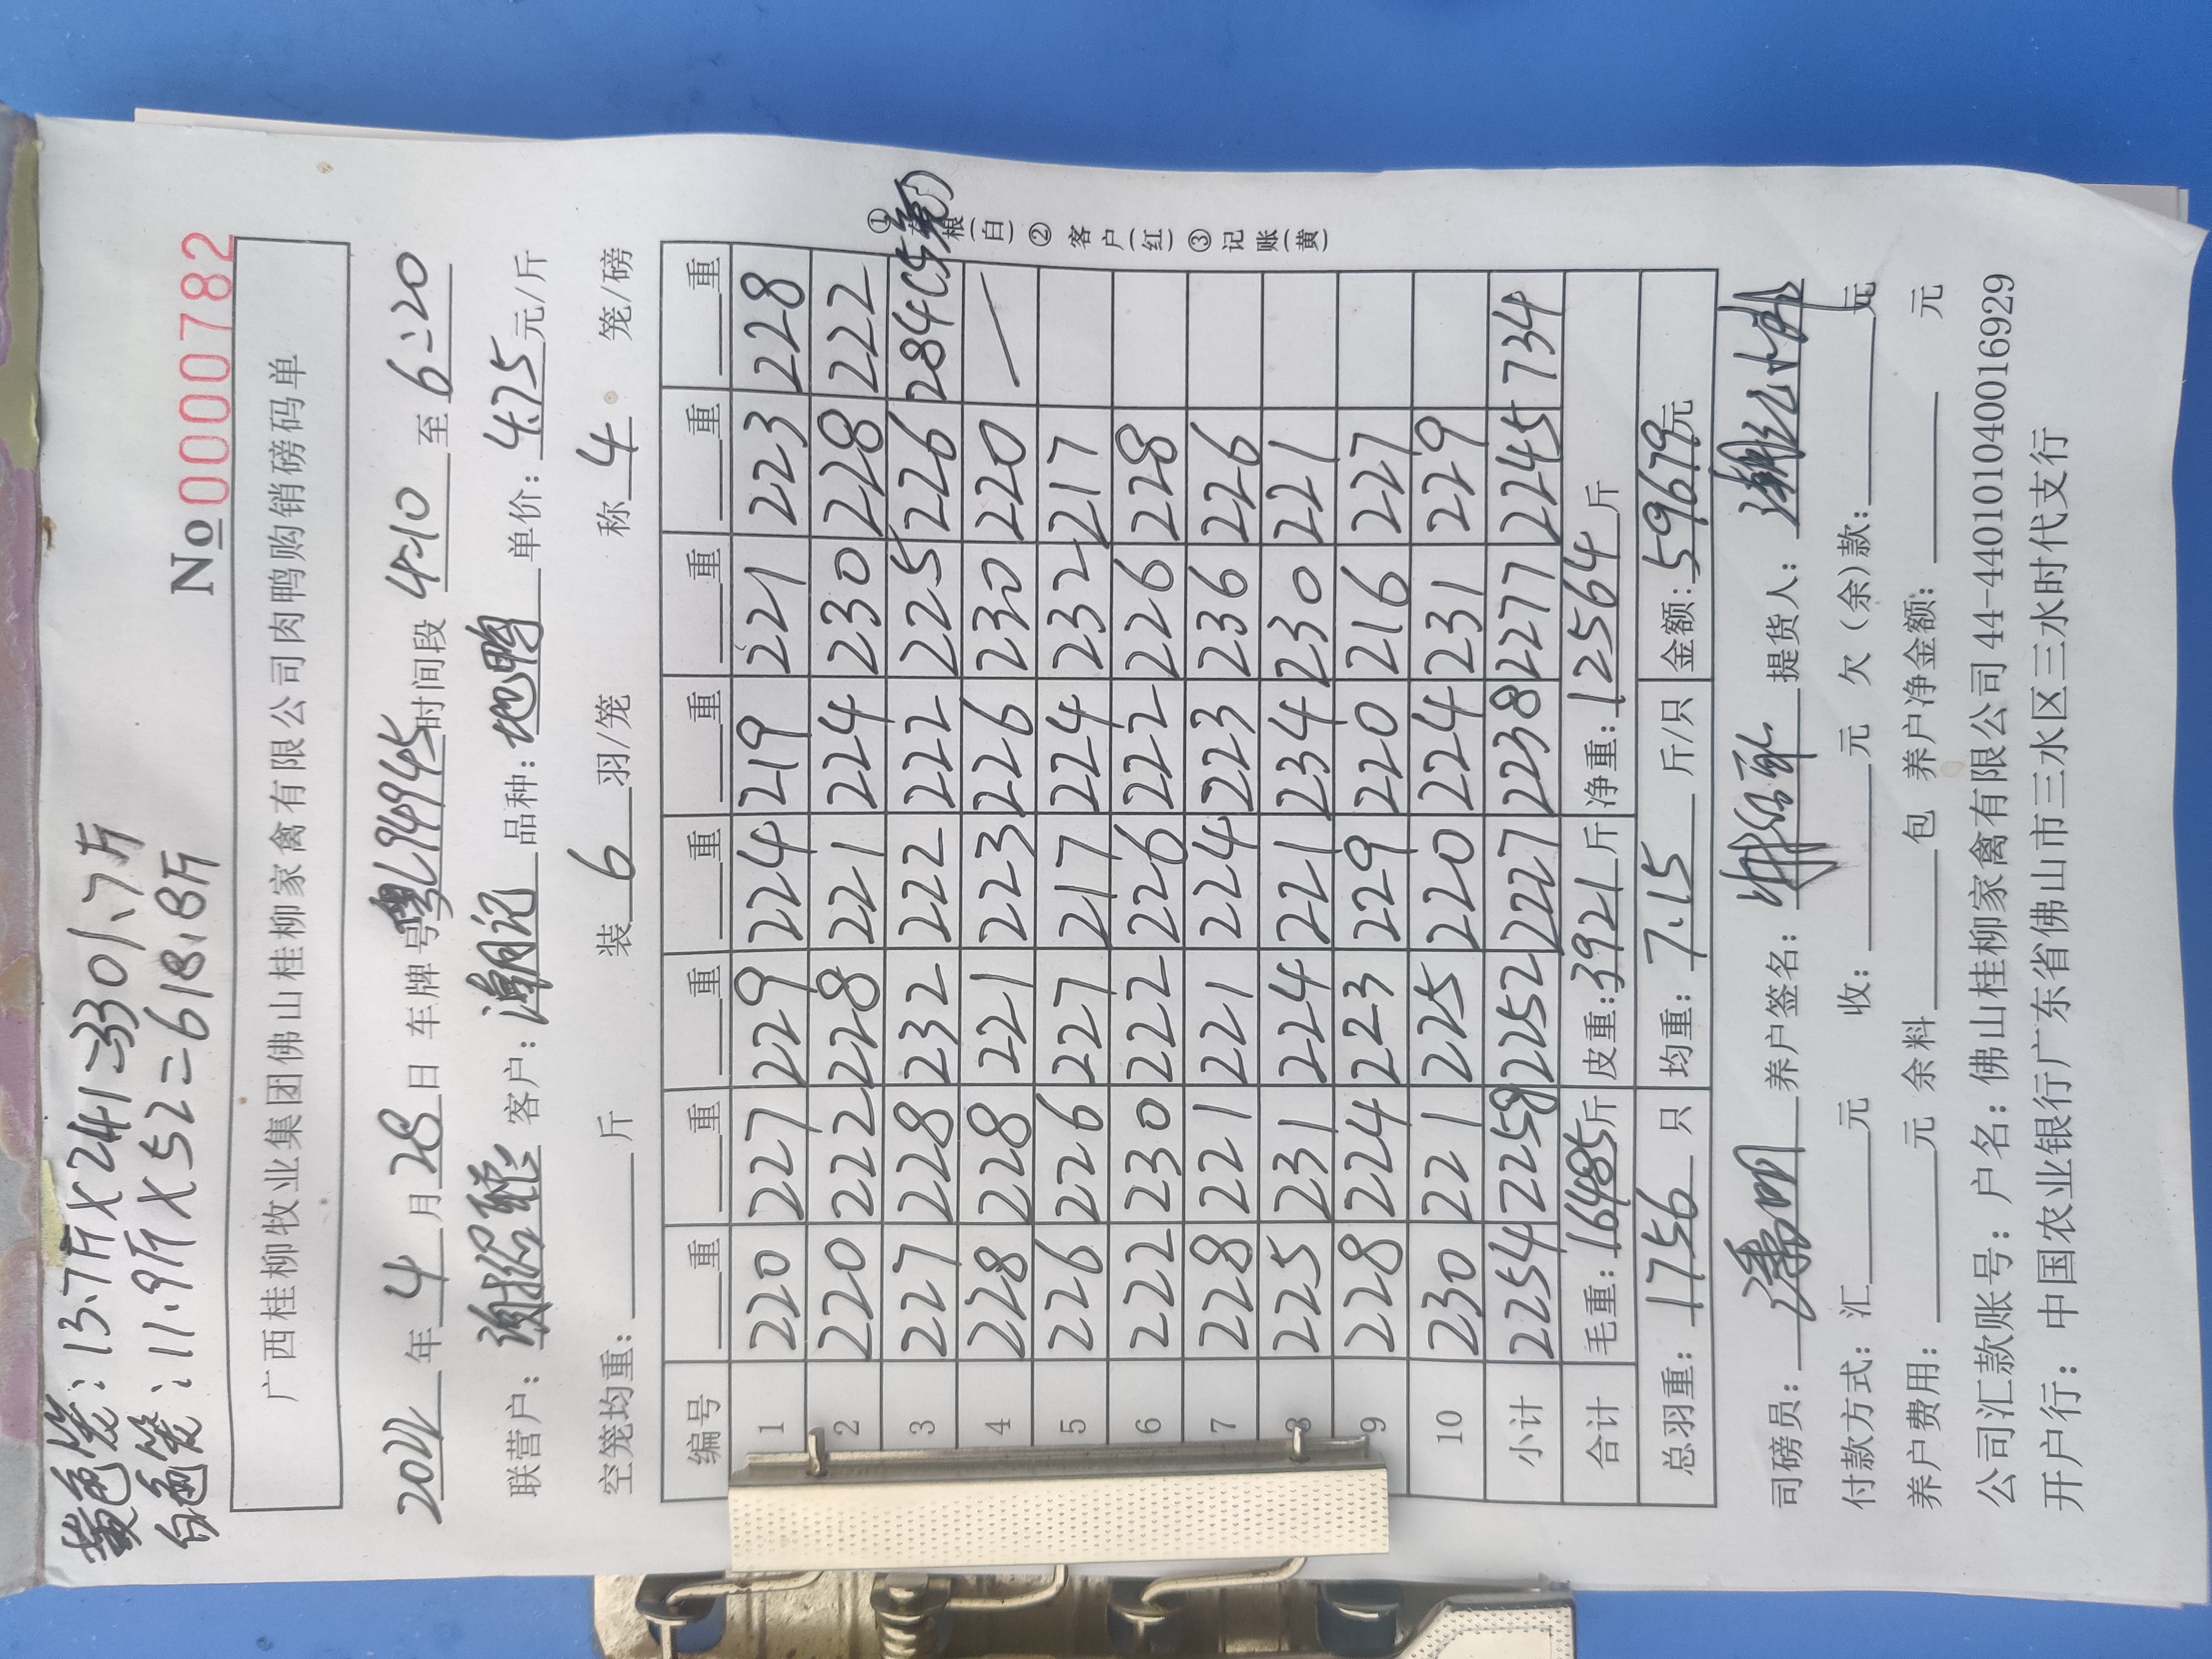 黄色笼：13.7斤×241=3301.7斤
白色笼：11.9斤×52=618.8斤
No 0000782
广西桂柳牧业集团佛山桂柳家禽有限公司肉鸭购销磅码单
2022年4月28日 车牌号粤L94945时间段4:10至6:20
联营户： 客户：潮记 品种：地鸭 单价：4.75元/斤
空笼均重：斤 装6羽/笼 称4笼/磅
编号 重 重 重 重 重 重 重 重
1 220 227 229 224 219 221 223 228
2 220 222 228 221 224 230 228 222
3 227 228 232 222 222 225 226 284(5笼)
4 228 228 221 223 226 230 220 /
5 226 226 227 217 224 232 217
6 222 230 222 226 222 226 228
7 228 221 221 224 223 236 226
8 225 231 224 221 234 230 221
9 228 224 223 229 220 216 227
10 230 221 225 220 224 231 229
小计 2254 2258 2252 2227 2238 2277 2245 734
合计 毛重：16485斤 皮重：3921斤 净重：12564斤
总羽重：1756只 均重：7.15斤/只 金额：59679元
①存根(白)②客户(红)③记账(黄)
司磅员： 养户签名： 提货人：
付款方式：汇元 收：元 欠（余）款：元
养户费用：元 余料包 养户净金额：元
公司汇款账号：户名：佛山桂柳家禽有限公司44-440101040016929
开户行：中国农业银行广东省佛山市三水区三水时代支行